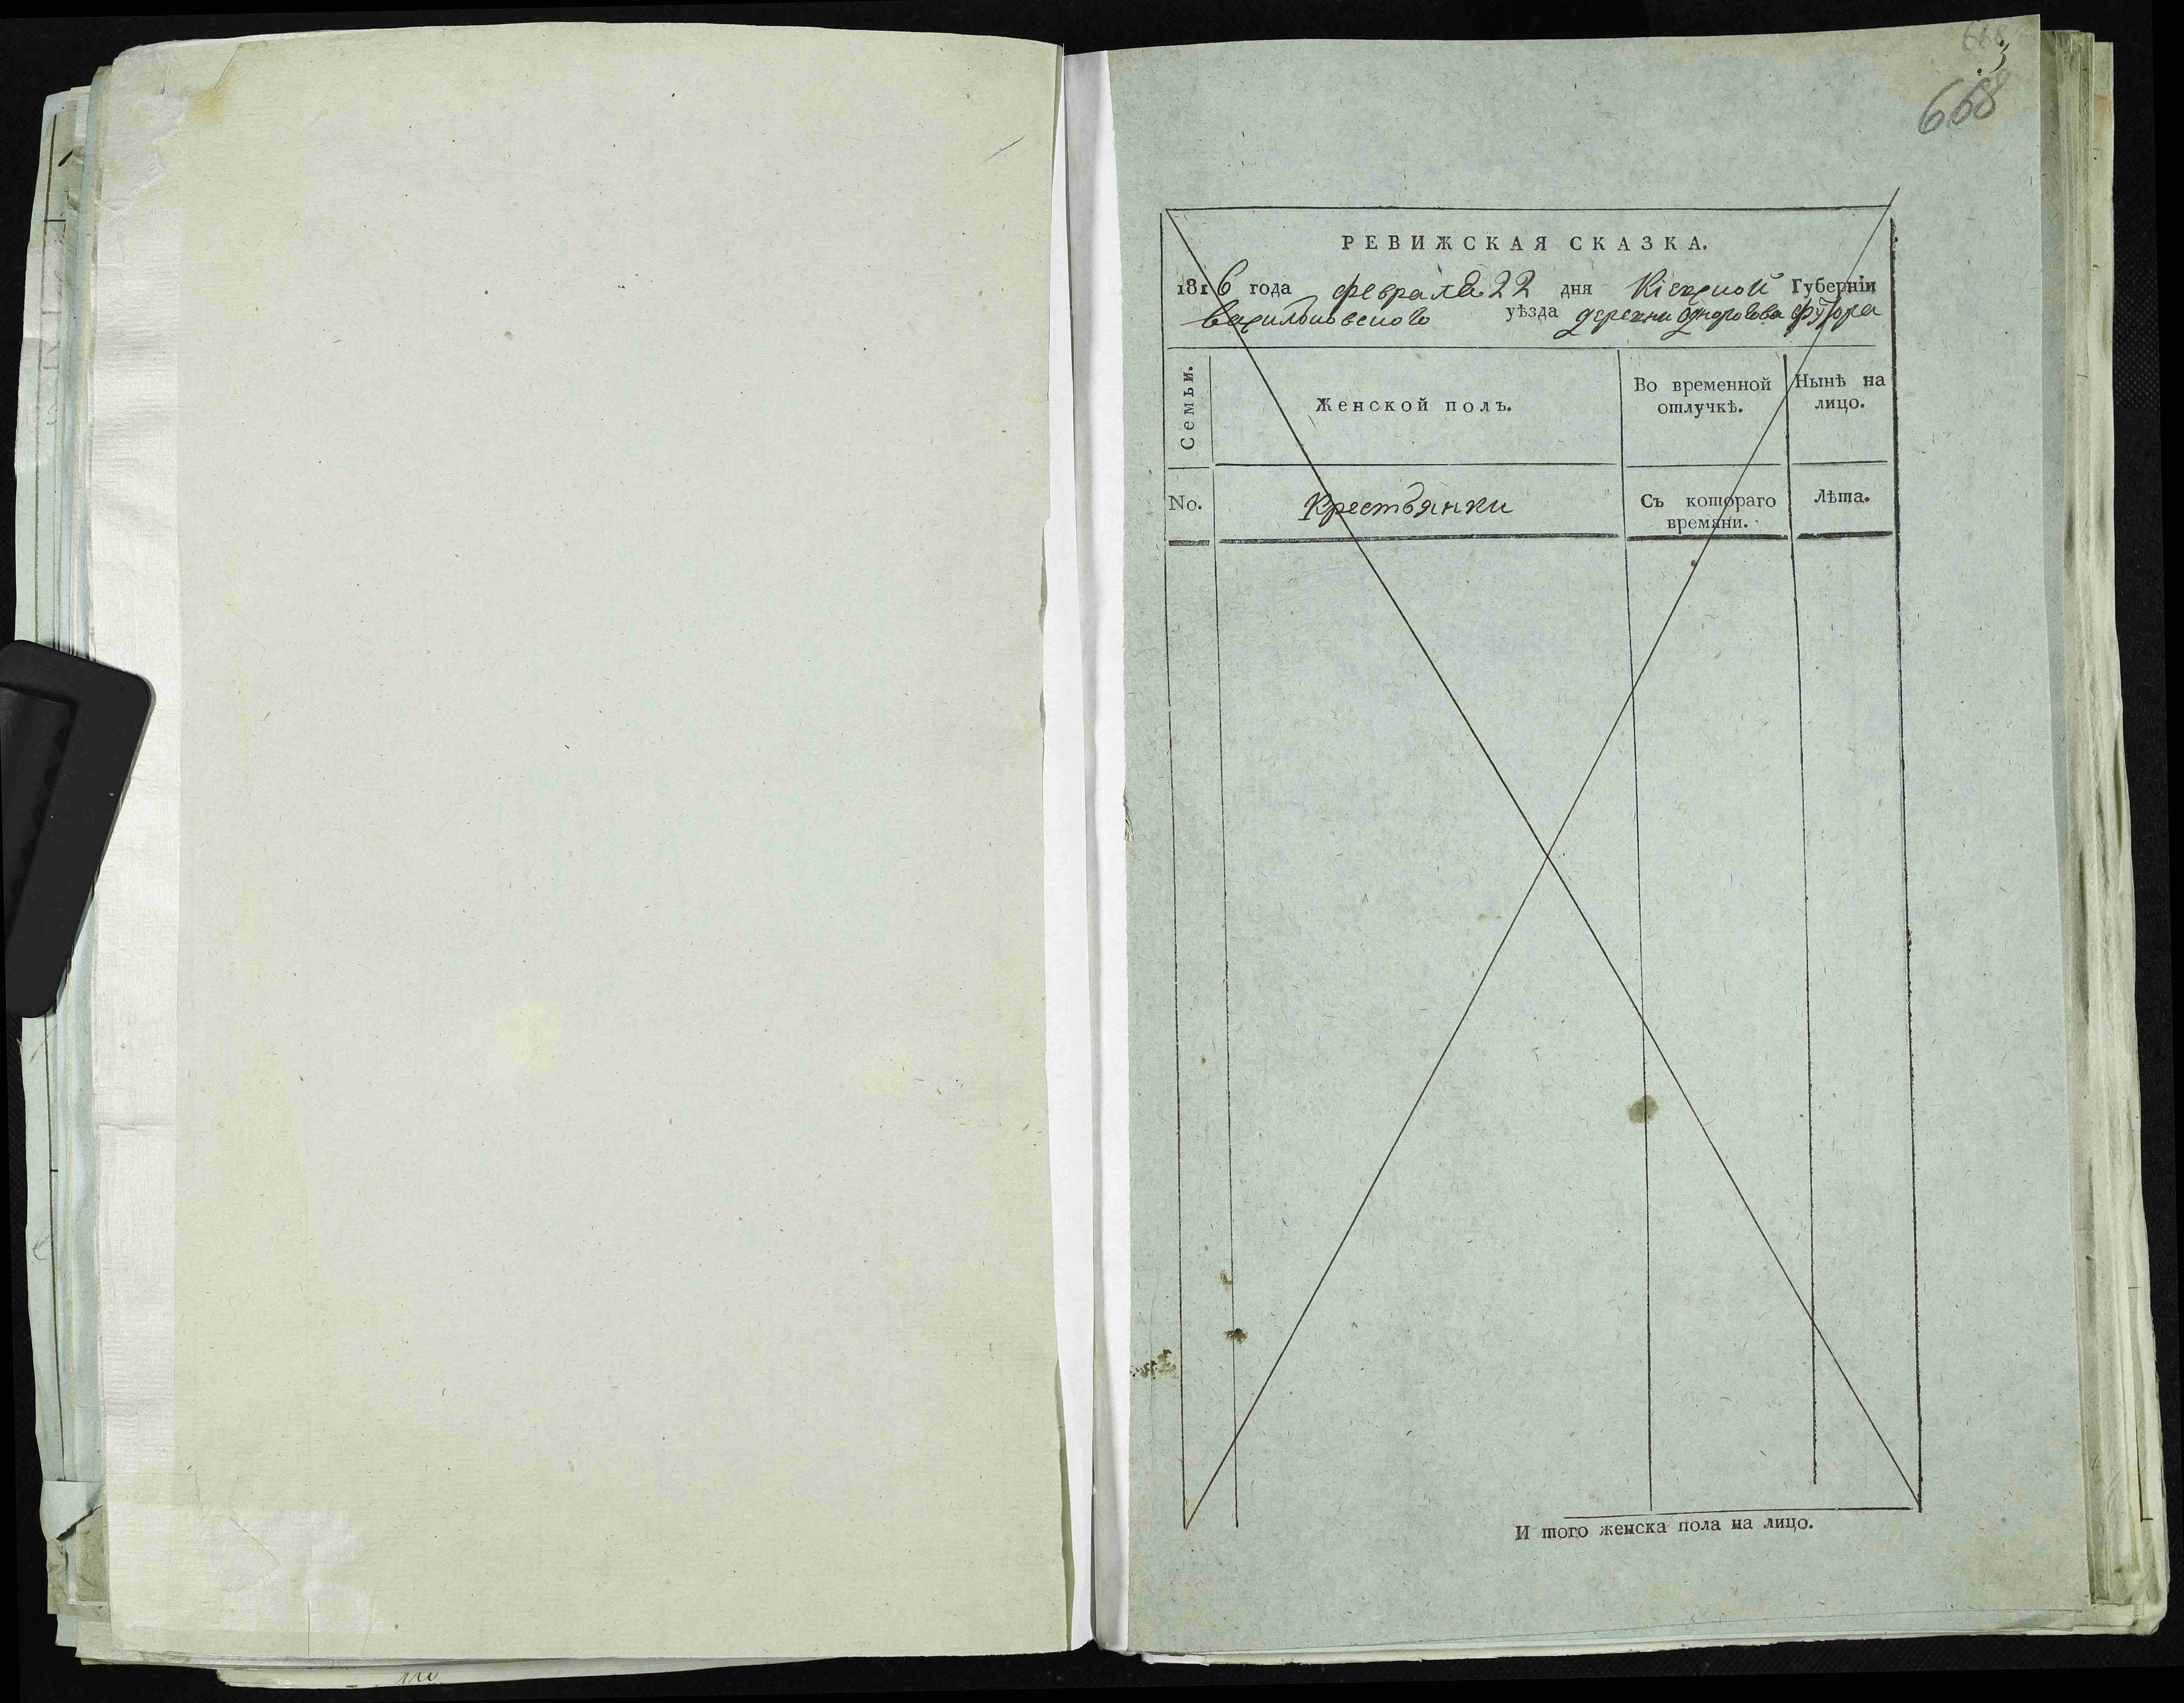 668
РЕВИЖСКАЯ СКАЗКА.
1816 года февраля 22 дня Кіевской Губерніи
Васильковского уѣзда деревни Однорогова Футора
Семьи.
Женской полъ.
Во временной отлучкѣ.
Нынѣ на лицо.
No.
Крестьянки
Съ котораго времяни.
Лѣта.
И того женска пола на лицо.